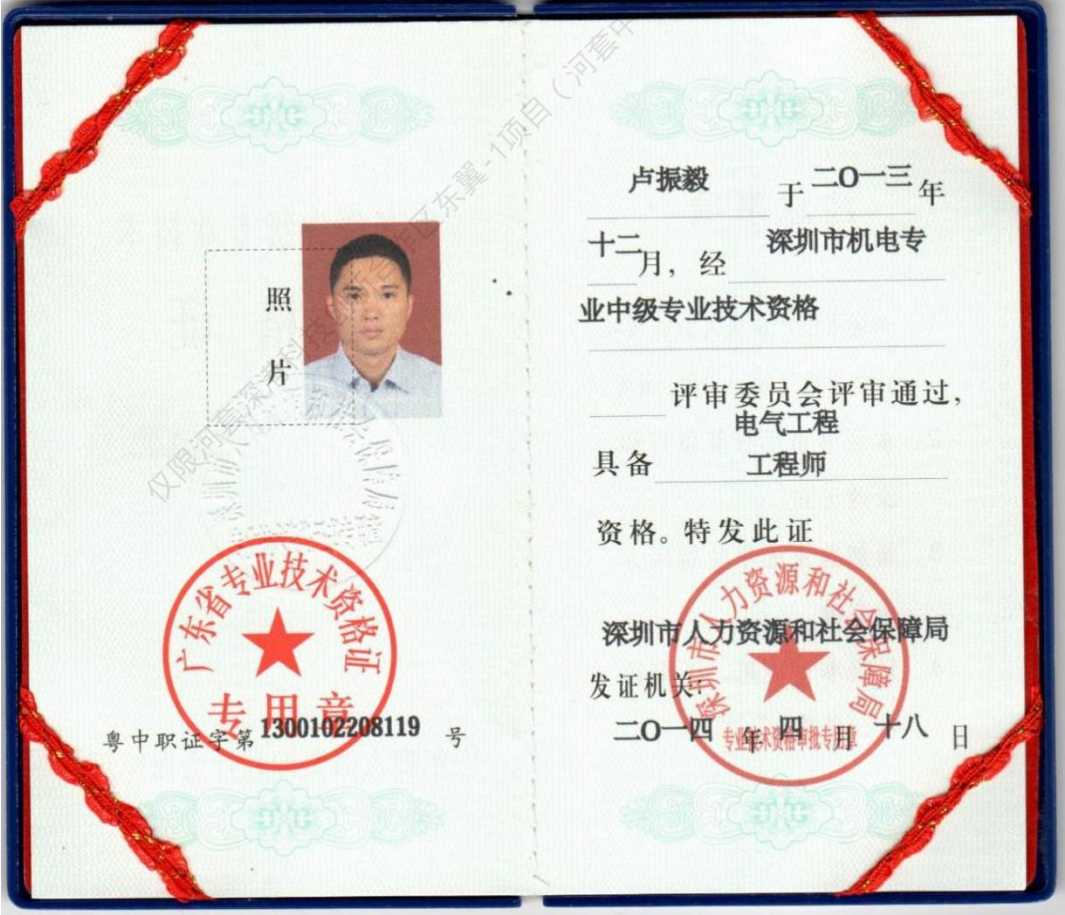 照
片
广东省专业技术资格证
专用章
粤中职证字第 1300102208119 号
卢振毅 于 二〇一三 年
十二 月，经 深圳市机电专
业中级专业技术资格
评审委员会评审通过，
电气工程
具备 工程师
资格。特发此证
深圳市人力资源和社会保障局
发证机关：
二〇一四 年 四 月 十八 日
深圳市人力资源和社会保障局
专业技术资格审批专用章